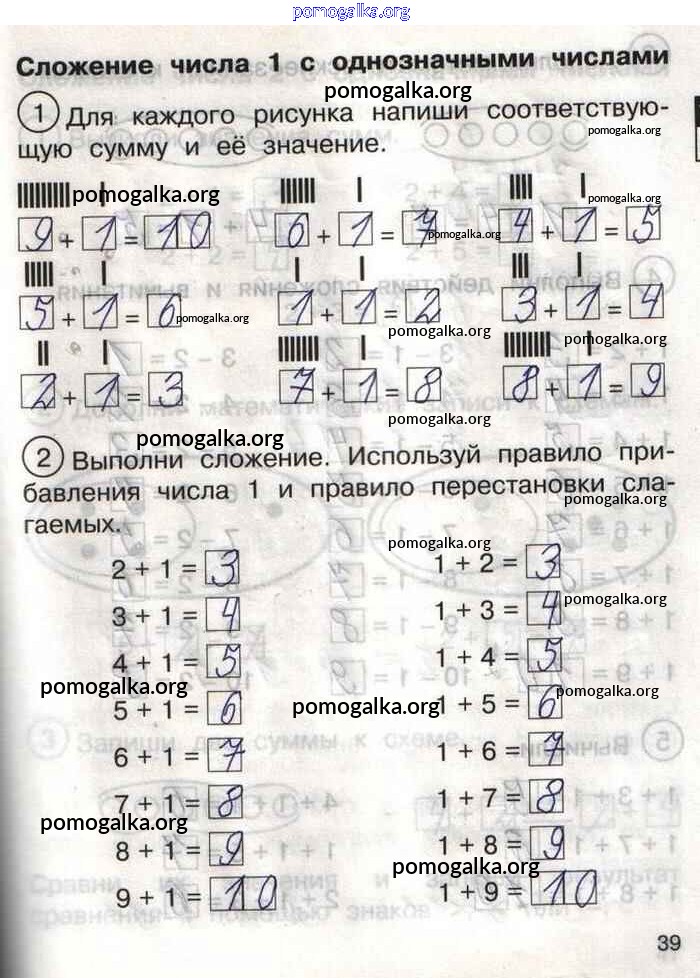 pomogalka.org
Сложение числа 1 с однозначными числами
pomogalka.org
1 Для каждого рисунка напиши соответствую-
pomogalka.org
щую сумму и её значение.
pomogalka.org
pomogalka.org
9 + 1 = 10 6 + 1 = 7 4 + 1 = 5
pomogalka.org
pomogalka.org
5 + 1 = 6 1 + 1 = 2 3 + 1 = 4
pomogalka.org
pomogalka.org
pomogalka.org
2 + 1 = 3 7 + 1 = 8 8 + 1 = 9
pomogalka.org
2 Выполни сложение. Используй правило при-
бавления числа 1 и правило перестановки сла-
pomogalka.org
гаемых.
pomogalka.org
2 + 1 = 3 1 + 2 = 3
pomogalka.org
3 + 1 = 4 1 + 3 = 4
4 + 1 = 5 1 + 4 = 5
pomogalka.org
pomogalka.org
5 + 1 = 6 1 + 5 = 6
pomogalka.org
6 + 1 = 7 1 + 6 = 7
7 + 1 = 8 1 + 7 = 8
pomogalka.org
8 + 1 = 9 1 + 8 = 9
pomogalka.org
9 + 1 = 10 1 + 9 = 10
39